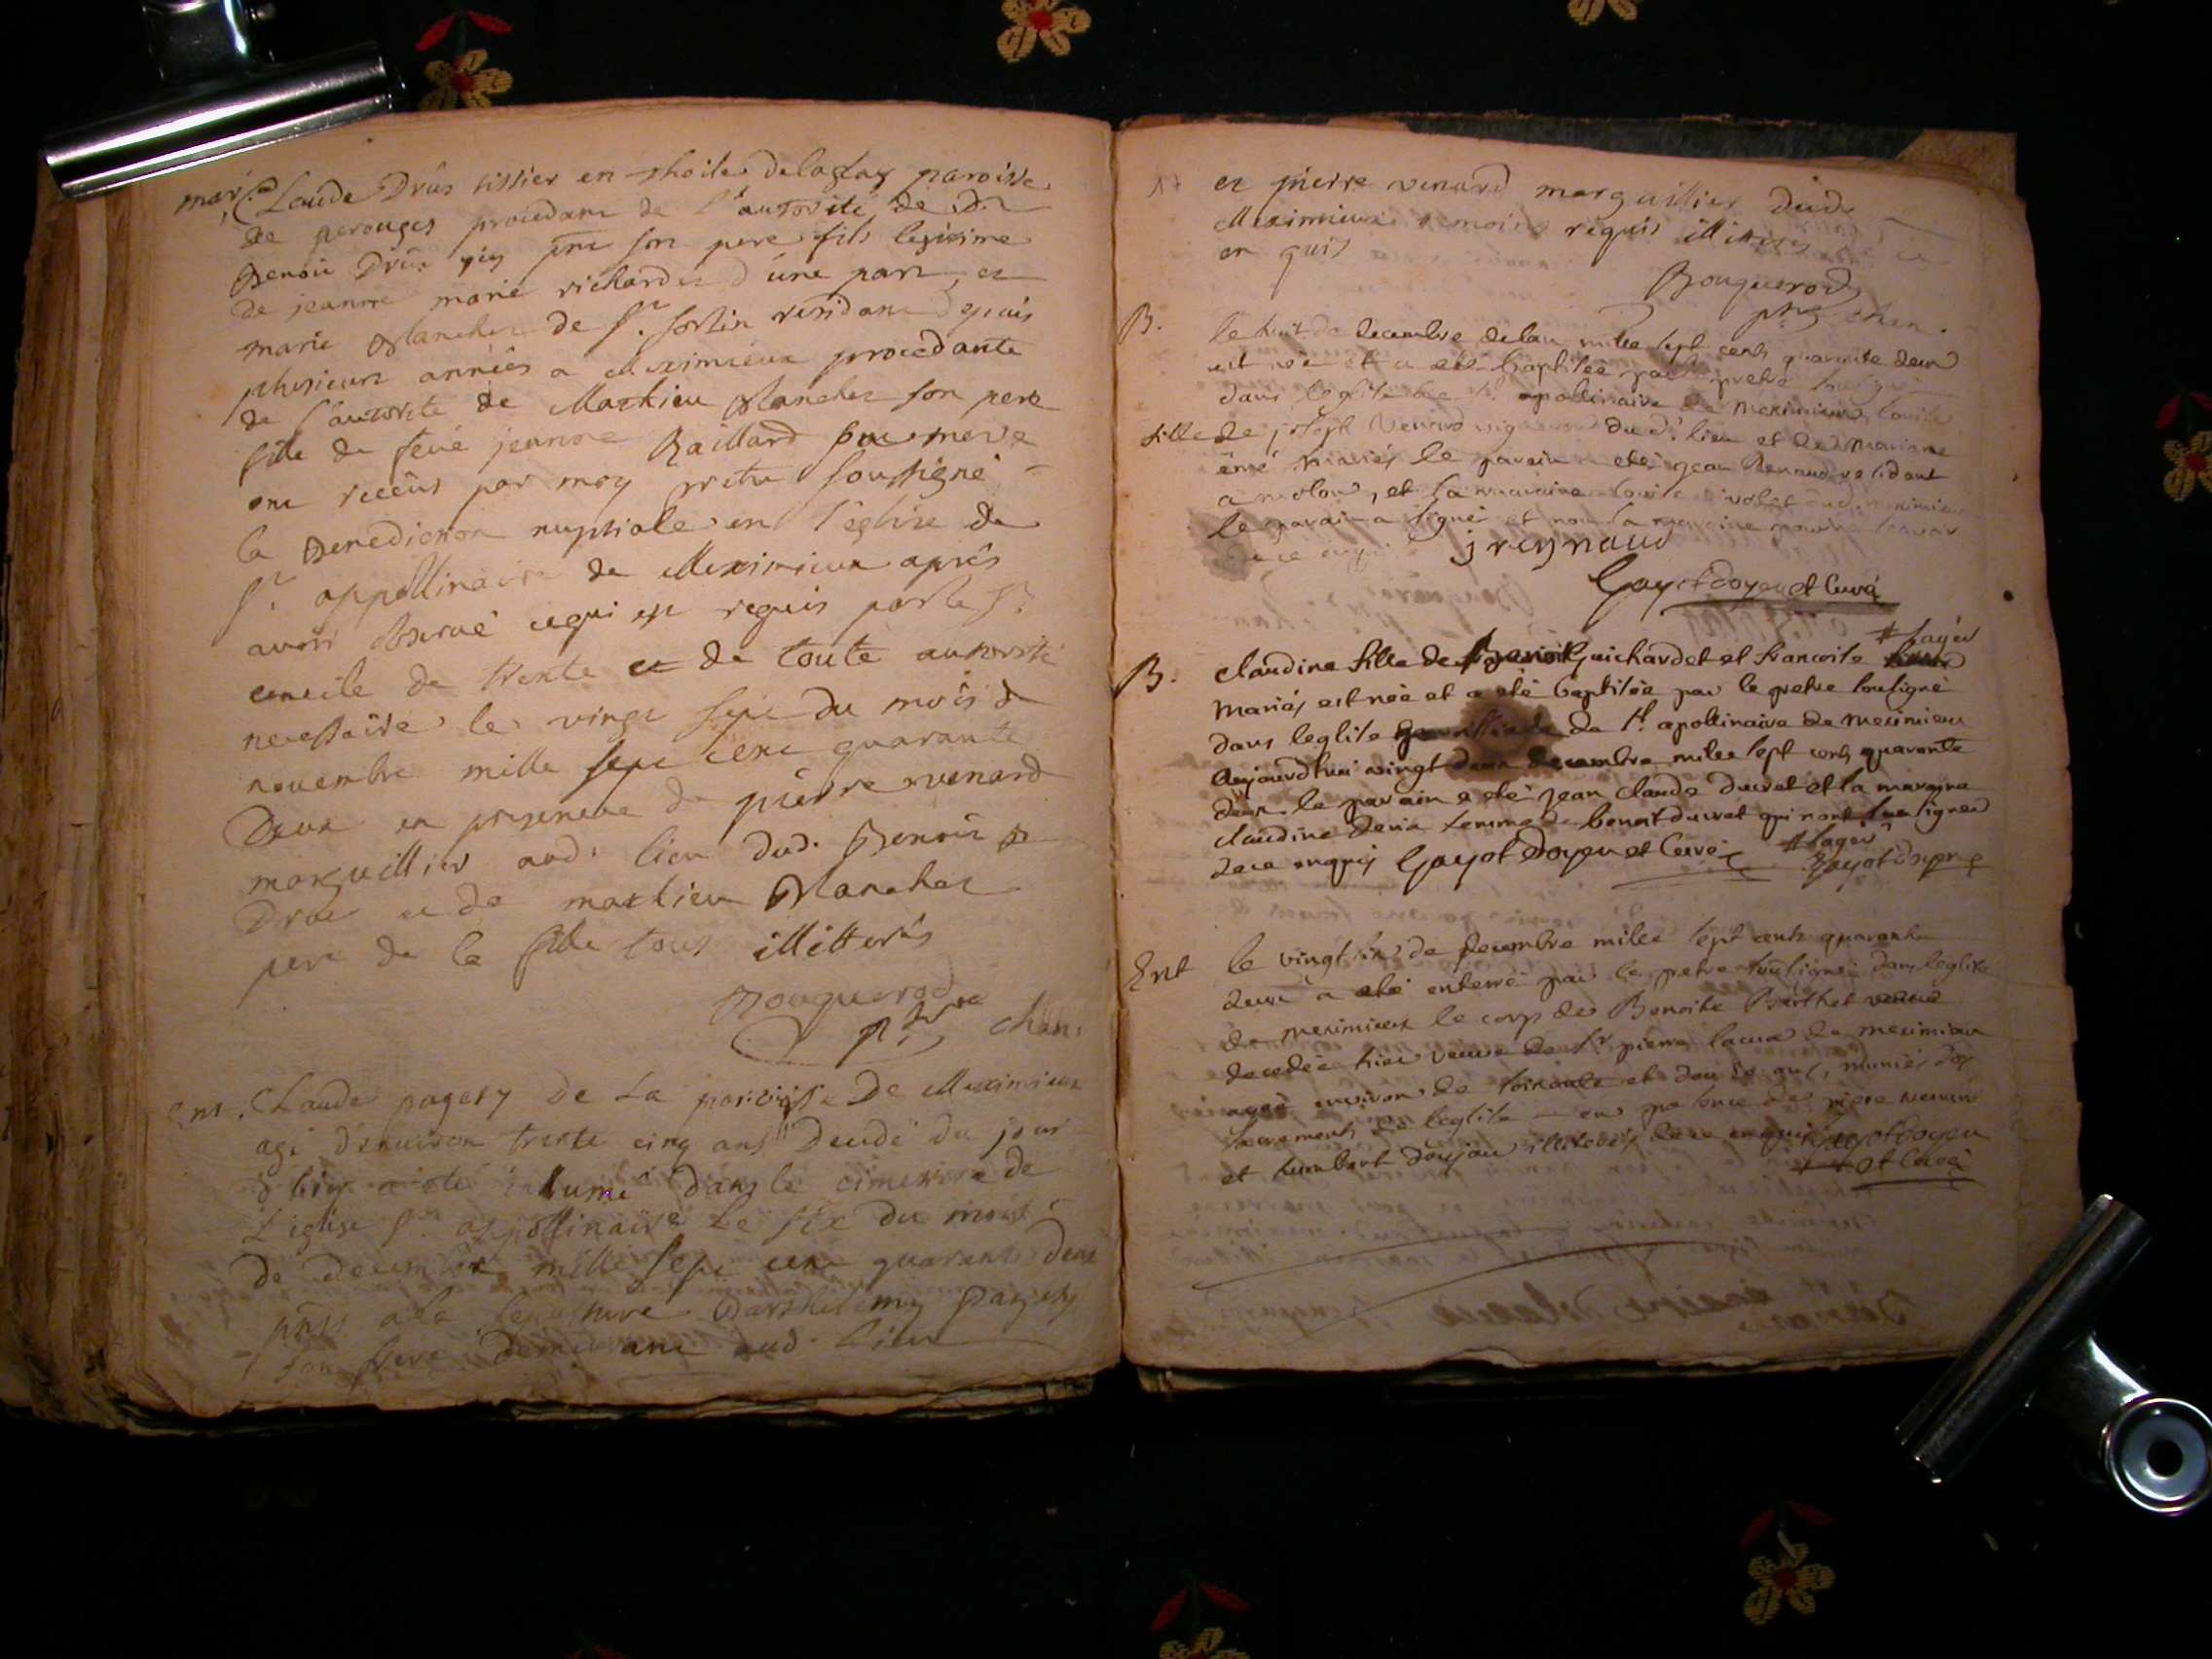 mar. Claude Drûs tissier en thoile delaglay paroisse
de perouges procedant de l'autorité de
Benoit Drûs son pere fils legitime
de jeanne marie richardet d'une part, et
marie Blanchet de St. sorlin residant depuis
plusieurs années a Meximieux procedante
de l'autorité de Mathieu Blanchet son pere
fille de feüe jeanne Raillard sa mere
ont recëus par moy pretre soussigné
la Benediction nuptiale en l'eglise de
St. appollinaire de Meximieux aprés
avoir observé cequi est requis par le St.
concile de trente et de toute autorité
necessaire le vingt sept du mois de
novembre mille sept cent quarante
Deux en presence de pierre venard
marguillier aud. lieu dud. Benoit
Drûs et de mathieu Blanchet
pere de la fille tous illitterés
Bouguerod
ptre chan.
Ent. Claude pagesy De La paroisse De Meximieux
agé d'environ trente cinq ans Decedé du jour
d'hier a été inhumé dans le cimetiere de
L'eglise St. appollinaire Le six du mois
de decembre mille sept cent quarante deux
pnts a la sepulture Barthelemy pagesy
son frere demeurant aud. Lieu
et pierre venard marguillier dud.
Meximieux temoins requis illitterés
en quis
Bouguerod
ptre chan.
B. le huit de decembre delan mille sept cents quarante deux
est née et a eté baptisée par pretre
dans leglise de St. apollinaire de meximieux louise
fille de joseph venard vigneron du dt. lieu et de mariane
mariés le parain a eté jean Renaud residant
a molon, et la maraine louise
le parain a signé et non la maraine pour ne scavoir
de ce enquis jreynaud
Gayot doyen et curé
B. claudine fille de Benoit Guichardet et francoise # fayer
mariés est née et a eté baptisée par le pretre sousigné
dans leglise de St. apollinaire de meximieux
aujourdhui vingt deux decembre milee sept cents quarante
deux le parain a eté jean claude ducret et la maraine
claudine femme de benoit ducret qui nont sue signer
de ce enquis Gayot Doyen et Curé # fayer
Gayot doyen
Ent le vingt six de decembre milee sept cents quarante
deux a eté enterré par le pretre sousigné dans leglise
de meximieux le corps de Benoite Berthet
decedée hier veuve de Sr. pierre de meximieux
agée environ de soixante et douze ans, muniés des
sacrements de leglise en presence de piere venard
et humbert illiterés de ce enquis Gayot Doyen
et Curé